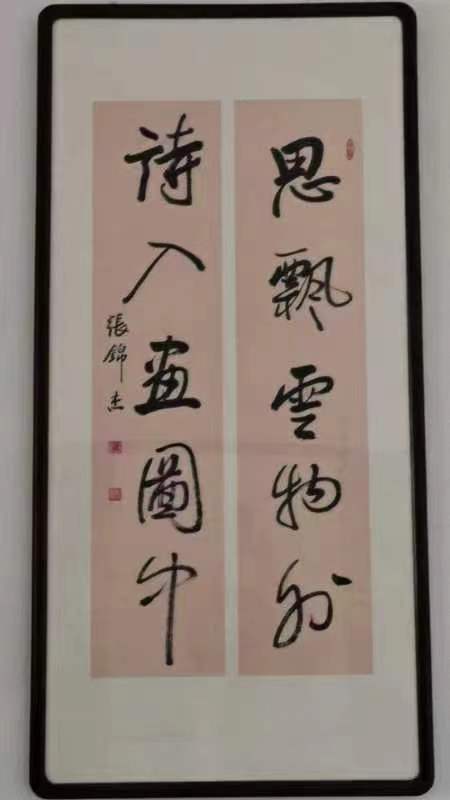 思飄雲物外
詩入畫圖中
張錦杰